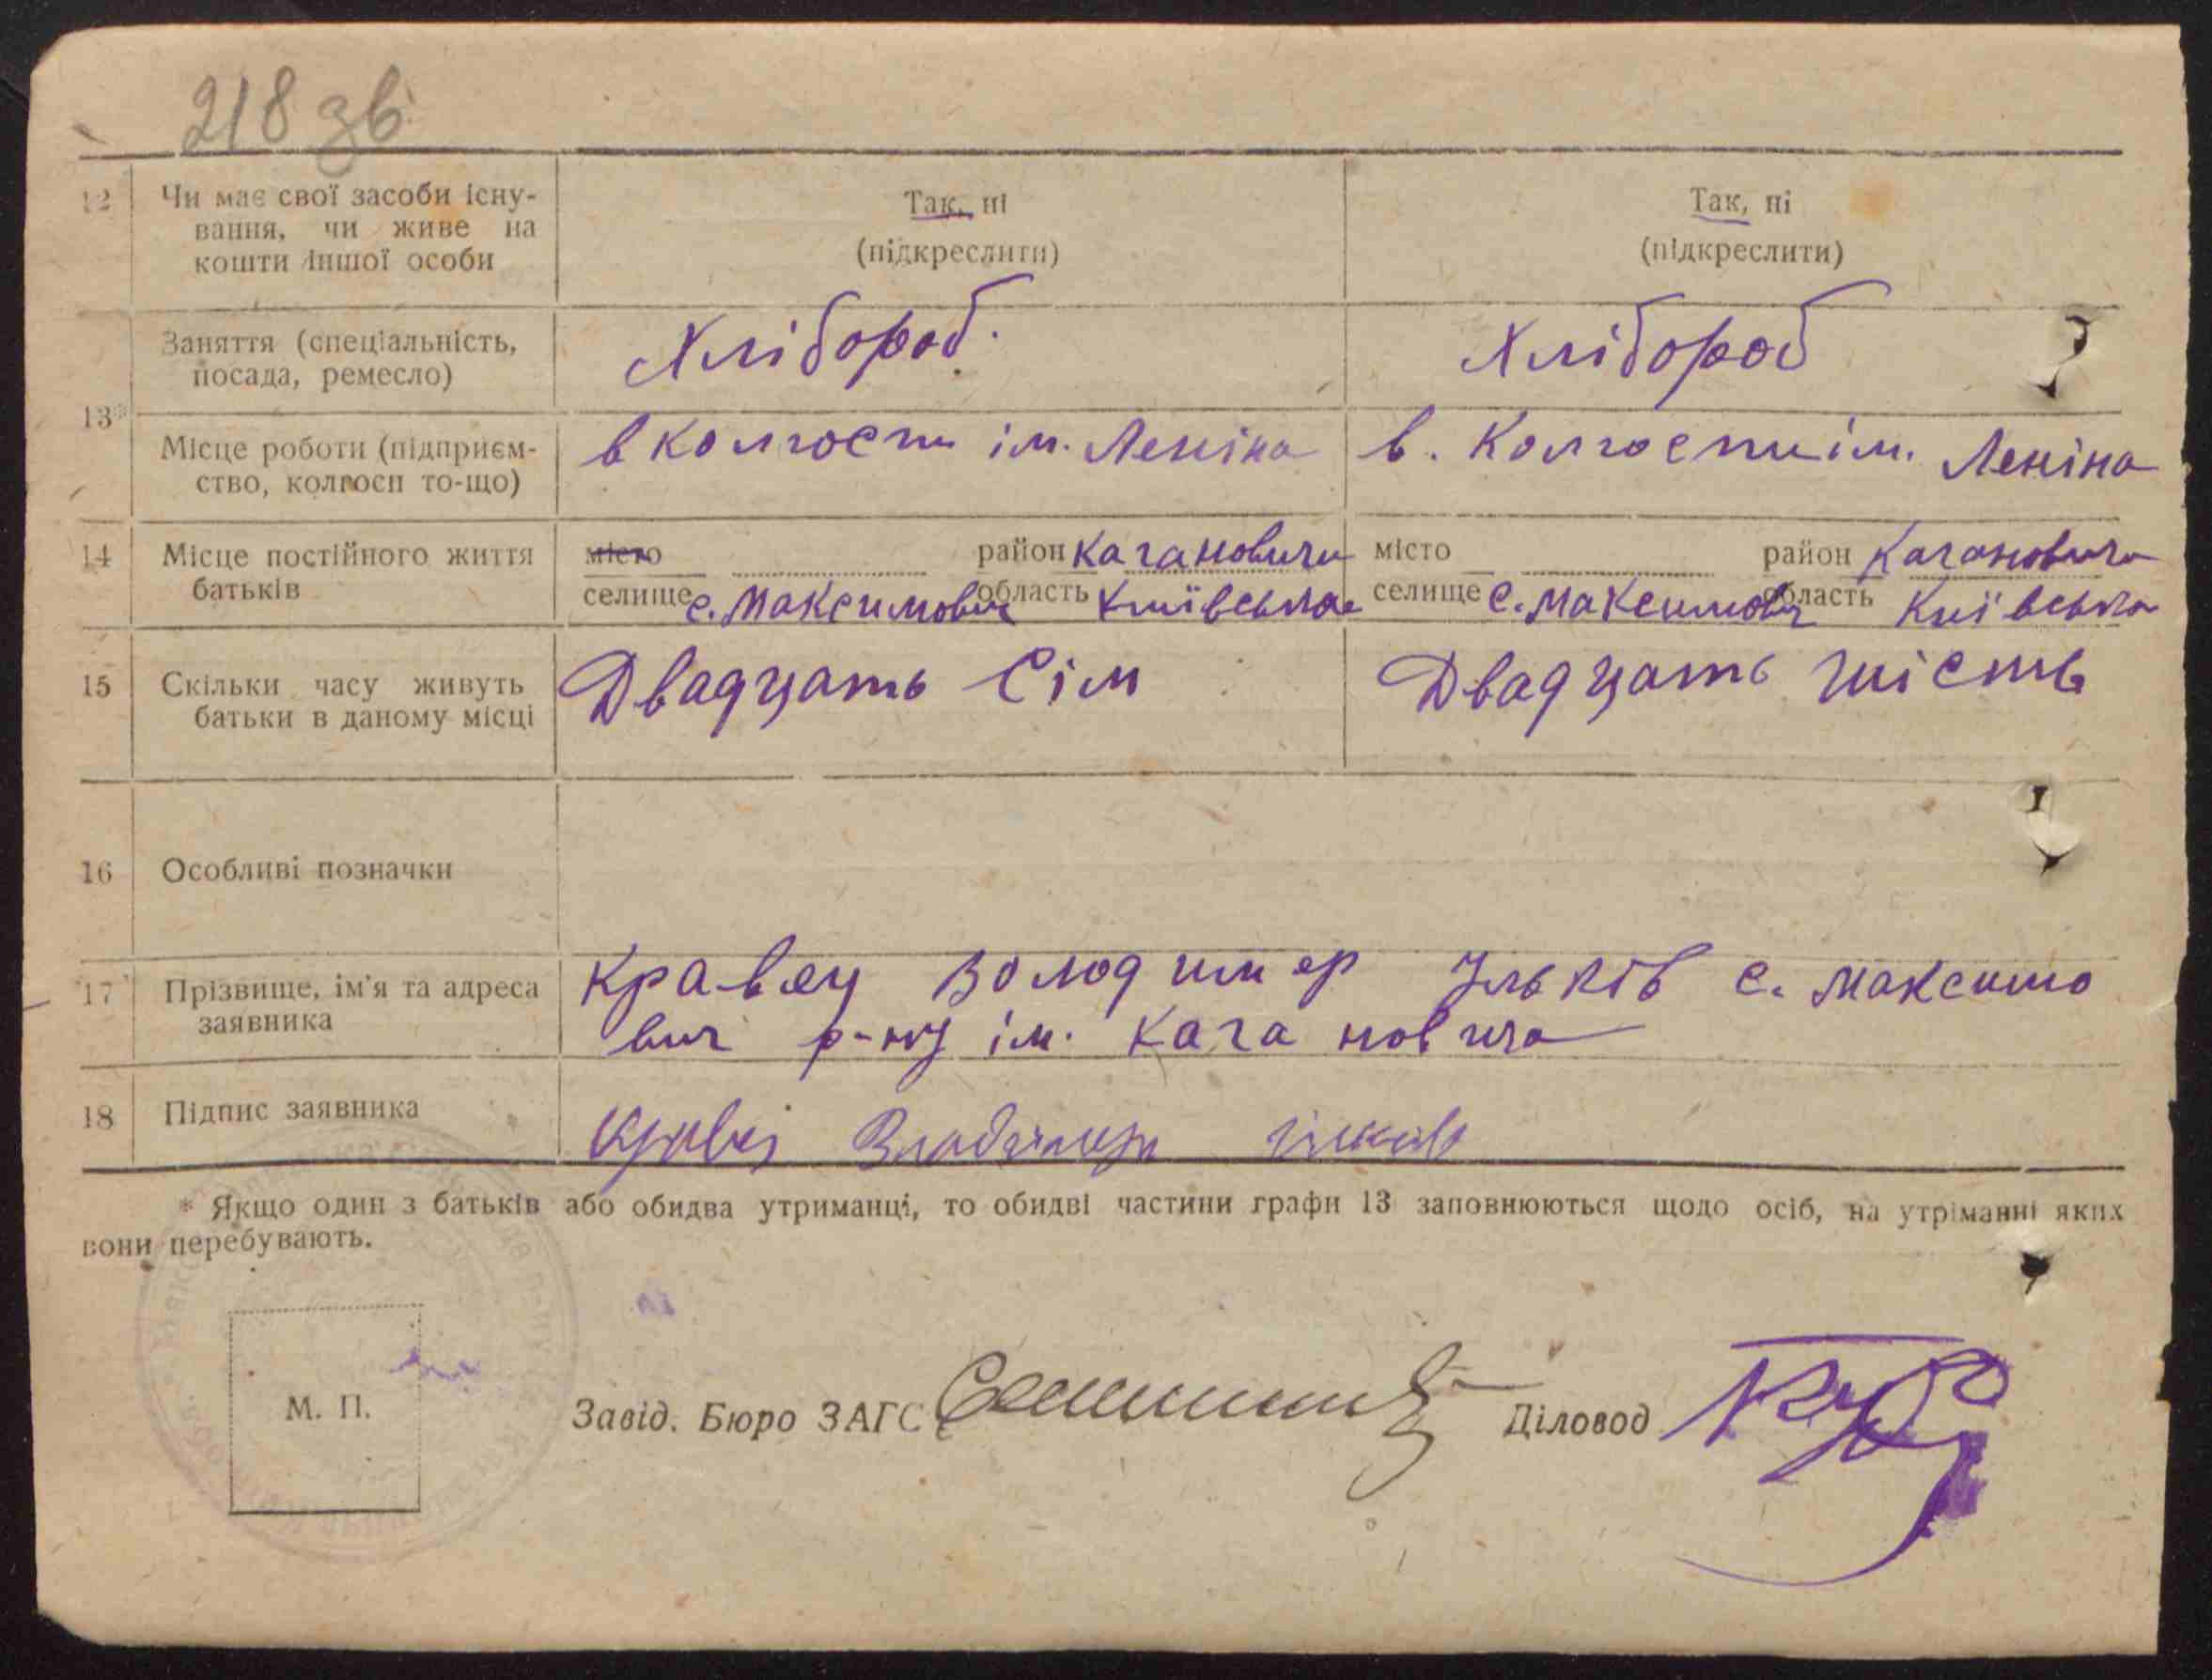 218 зв.
12 Чи має свої засоби існу-
вання, чи живе на
кошти іншої особи
Так, ні
(підкреслити)
Так, ні
(підкреслити)
13*
Заняття (спеціальність,
посада, ремесло)
Хлібороб.
Хлібороб
Місце роботи (підприєм-
ство, колгосп то-що)
в колгоспи ім. Леніна
в. Колгоспи ім. Леніна
14 Місце постійного життя
батьків
місто район Кагановича
селище с. Максимович область Київська
місто район Кагановича
селище с. Максимович область Київська
15 Скільки часу живуть
батьки в даному місці
Двадцать Сім
Двадцать шість
16 Особливі позначки
17 Прізвище, ім'я та адреса
заявника
Кравец Володимер Ільків с. Максимо
вич р-ну ім. Кагановича
18 Підпис заявника
* Якщо один з батьків або обидва утриманці, то обидві частини графи 13 заповнюються щодо осіб, на утріманні яких
вони перебувають.
М. П.
Завід. Бюро ЗАГС
Діловод